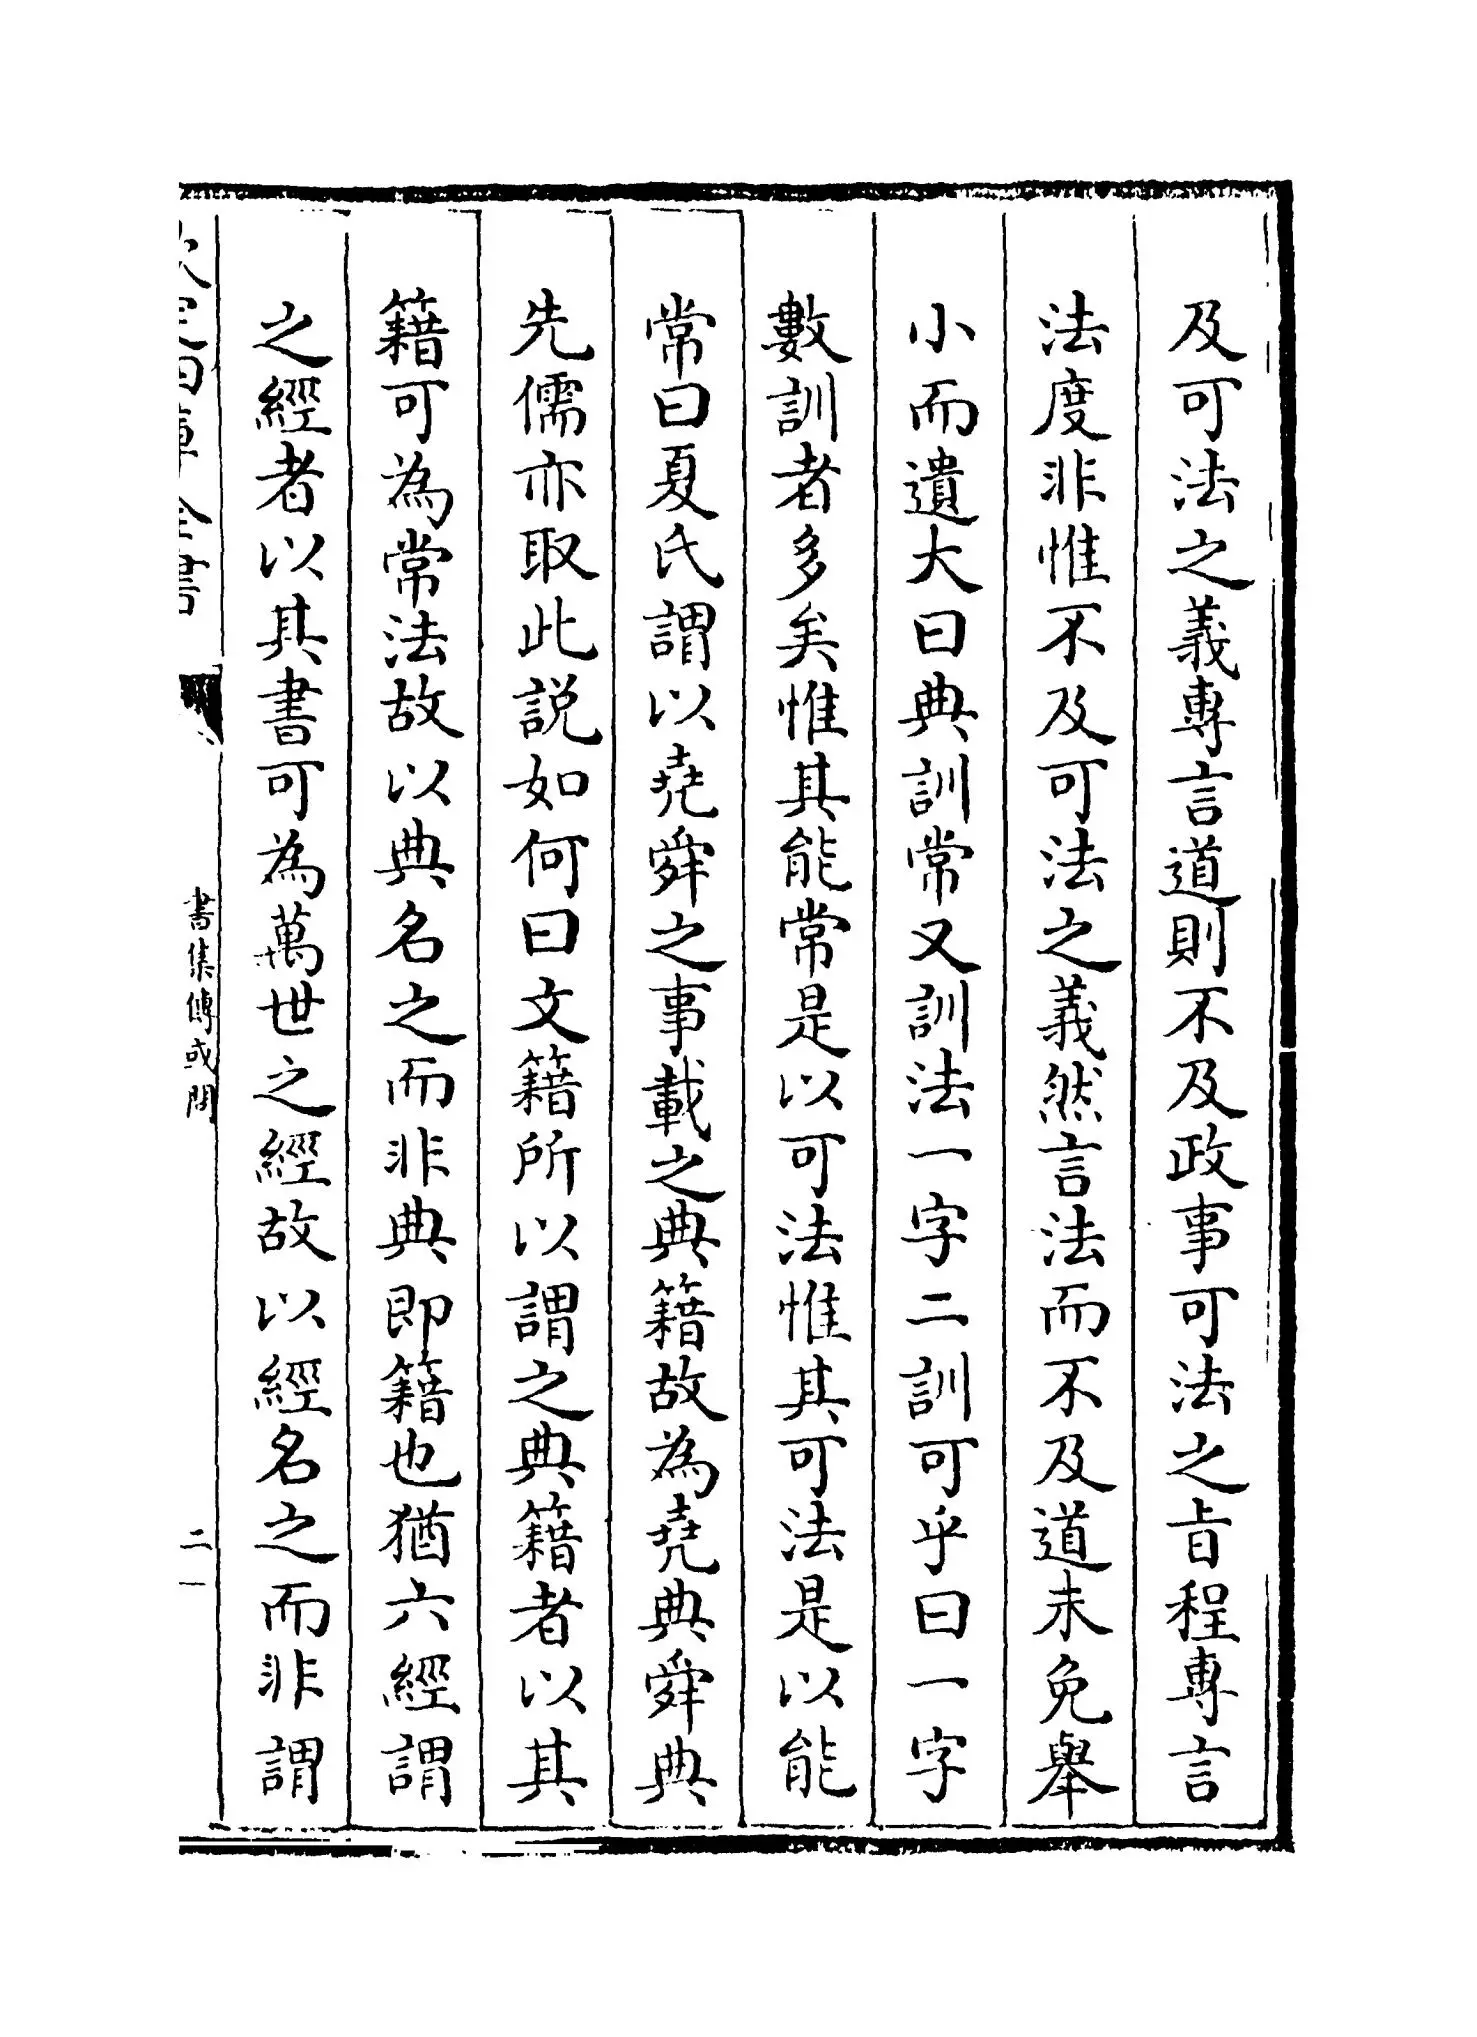 及可法之義專言道則不及政事可法之㫖程專言
法度非惟不及可法之義然言法而不及道未免舉
小而遺大曰典訓常又訓法一字二訓可乎曰一字
數訓者多矣惟其能常是以可法惟其可法是以能
常曰夏氏謂以堯舜之事載之典籍故為堯典舜典
先儒亦取此説如何曰文籍所以謂之典籍者以其
籍可為常法故以典名之而非典即籍也猶六經謂
之經者以其書可為萬世之經故以經名之而非謂
欽定四庫全書
書集傳或問
二